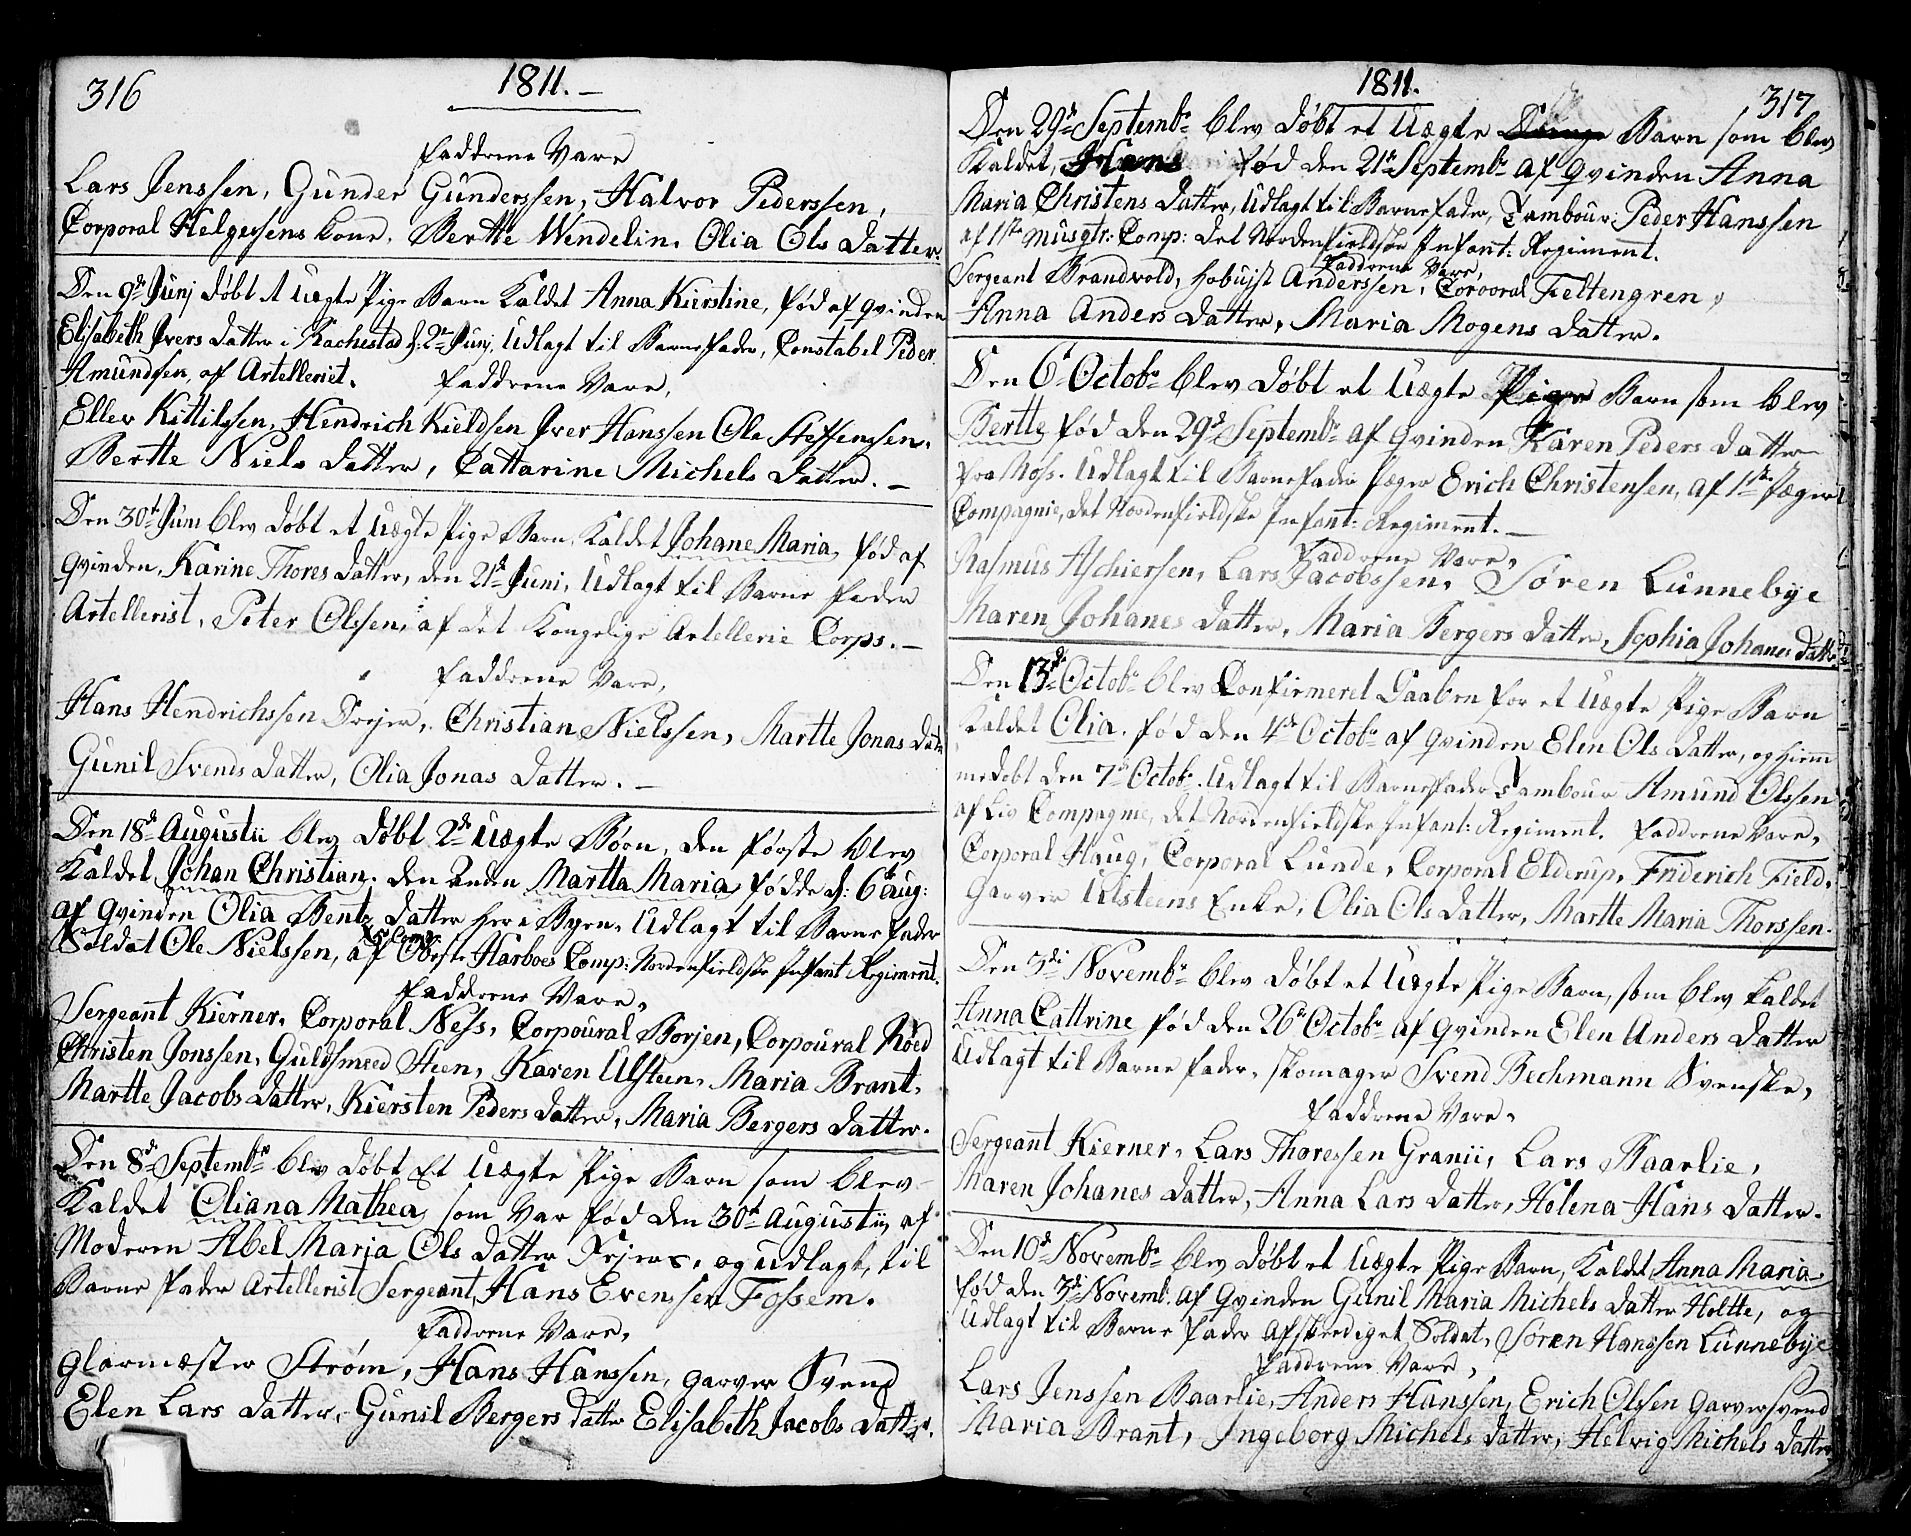 316
1811.–
Faddrene Vare
Lars Jenssen, Gunder Gunderssen, Halvor Pederssen,
Corporal Helgersens kone, Bertte Wendelin. Olia Ols Datter.
Den 9de Junj Døbt et Uægte Pige Barn Kaldet Anna Kierstine, fød af qvinden
Elisabeth Ivers Datter i Rachestad d: 2den Junj, Udlagt til Barnefader, Constabel Peder
Amundsen, af Artelleriet. Faddrene Vare,
Eller Kittilssen, Hendrich Kieldsen Iver Hanssen Ole Steffenssen,
Bertte Niels Datter, Cattarine Michels Datter. –
Den 30te Juni blev Døbt et Uægte Pige Barn Kaldet Johane Maria, fød af
Qvinden, Karine Thores Datter, den 21de Juni, Udlagt til Barne fader
Artellerist, Peter Olssen, af det Kongelige Artellerie Corps. –
Faddrene Vare,
Hans Hendrichssen Dreyer, Christian Nielssen, Martte Jonas Datt
Gunil Svends Datter, Olia Jonas Datter. –
Den 18de Augustii blev Døbt 2de Uægte Børn, den første blev
Kaldet Johan Christian. den Anden Martta Maria, fødde d: 6te aug:
af Qvinden Olia Bentz Datter her i Byen, Udlagt til Barne fader
Soldat Ole Nielssen, af Oberste Harboes Comp: Nordenfieldske Infant Regiment.
Faddrene Vare,
Sergeant Kierner, Corporal Ness, Corpoural Borjen, Corpoural Röed
Christen Jonssen, Guldsmeed Steen, Karen Ulsteen, Maria Brant,
Martte Jacobs Datter, Kiersten Peders Datter, Maria Bergers Datter.
Den 8de Septembr blev Døbt Et Uægte Pige Barn som blev
Kaldet Oliana Mathea, som var fød den 30te Augustij, af
Moderen Abel Maria Ols Datter og Udlagt, til
Barne fader Artellerist Sergeant, Hans Evenssen Fossem.
Faddrene Vare,
Glarmester Strøm, Hans Hanssen, garver Svend
Elen Lars Datter, Gunil Bergers Datter Elisabeth Jacobs Datter.
1811.
317
Den 29de Septembr blev Døbt et Uægte Barn som blev
Kaldet, Hans fød den 21de Septembr af qvinden Anna
Maria Christens Datter, Udlagt til Barnefader, Tambour: Peder Hanssen
af 1ste Musqtr: Comp: det Nordenfieldske Infant: Regiment.
Faddrene Vare,
Sergeant Brandvold, Hobuist Anderssen, Corporal Feltengren,
Anna Anders Datter, Maria Mogens Datter.
Den 6te Octobr blev Døbt et Uægte Pige Barn som blev
Bertte, fød den 29de Septembr af Qvinden Karen Peders Datter
fra Moss. Udlagt til Barnefader Jæger Erich Christensen, af 1ste Jæger
Compagnie, det Nordenfieldske Infant: Regiment. –
Faddrene Vare,
Rasmus Aschiersen, Lars Jacobssen, Søren Lunnebye
Maren Johanes Datter, Maria Bergers Datter, Sophia Johanes Datt
Den 13de Octobr blev Confirmeret Daaben for et Uægte Pige Barn
Kaldet Olia. fød den 4de Octobr af qvinden Elen Ols Datter, og hiem
medøbt den 7de Octobr. Udlagt til Barnefader Tambour Amund Olssen
af Liv Compagnie, det Nordenfieldske Infant: Regiment. Faddrene Vare,
Corporal Haug, Corporal Lunde, Corporal Elderup, Friderich Field,
Garver Ulsteens Enke, Olia Ols Datter, Martte Maria Thorssen.
Den 3die Novembr blev Døbt et Uægte Pige Barn, som blev kaldet
Anna Cattrine fød den 26de Octobr af Qvinden Elen Anders Datter
Udlagt til Barne fader, Skomager Svend Bechmann Svenske,
Faddrene Vare,
Sergeant Kierner, Lars Thoressen Granii, Lars Baarlie,
Maren Johanes Datter, Anna Lars Datter, Helena Hans Datter.
Den 10de Novembr blev Døbt et Uægte Pige Barn, Kaldet Anna Maria
fød den 3die Novemb: af Qvinden Gunil Maria Michels Datter Holtte, og
Udlagt til Barne fader Afskeediget Soldat, Søren Hanssen Lunnebye
Faddrene Vare,
Lars Jenssen Baarlie, Anders Hanssen, Erich Olsen garversvend
Maria Brant, Ingeborg Michels Datter, Helvig Michels Datter